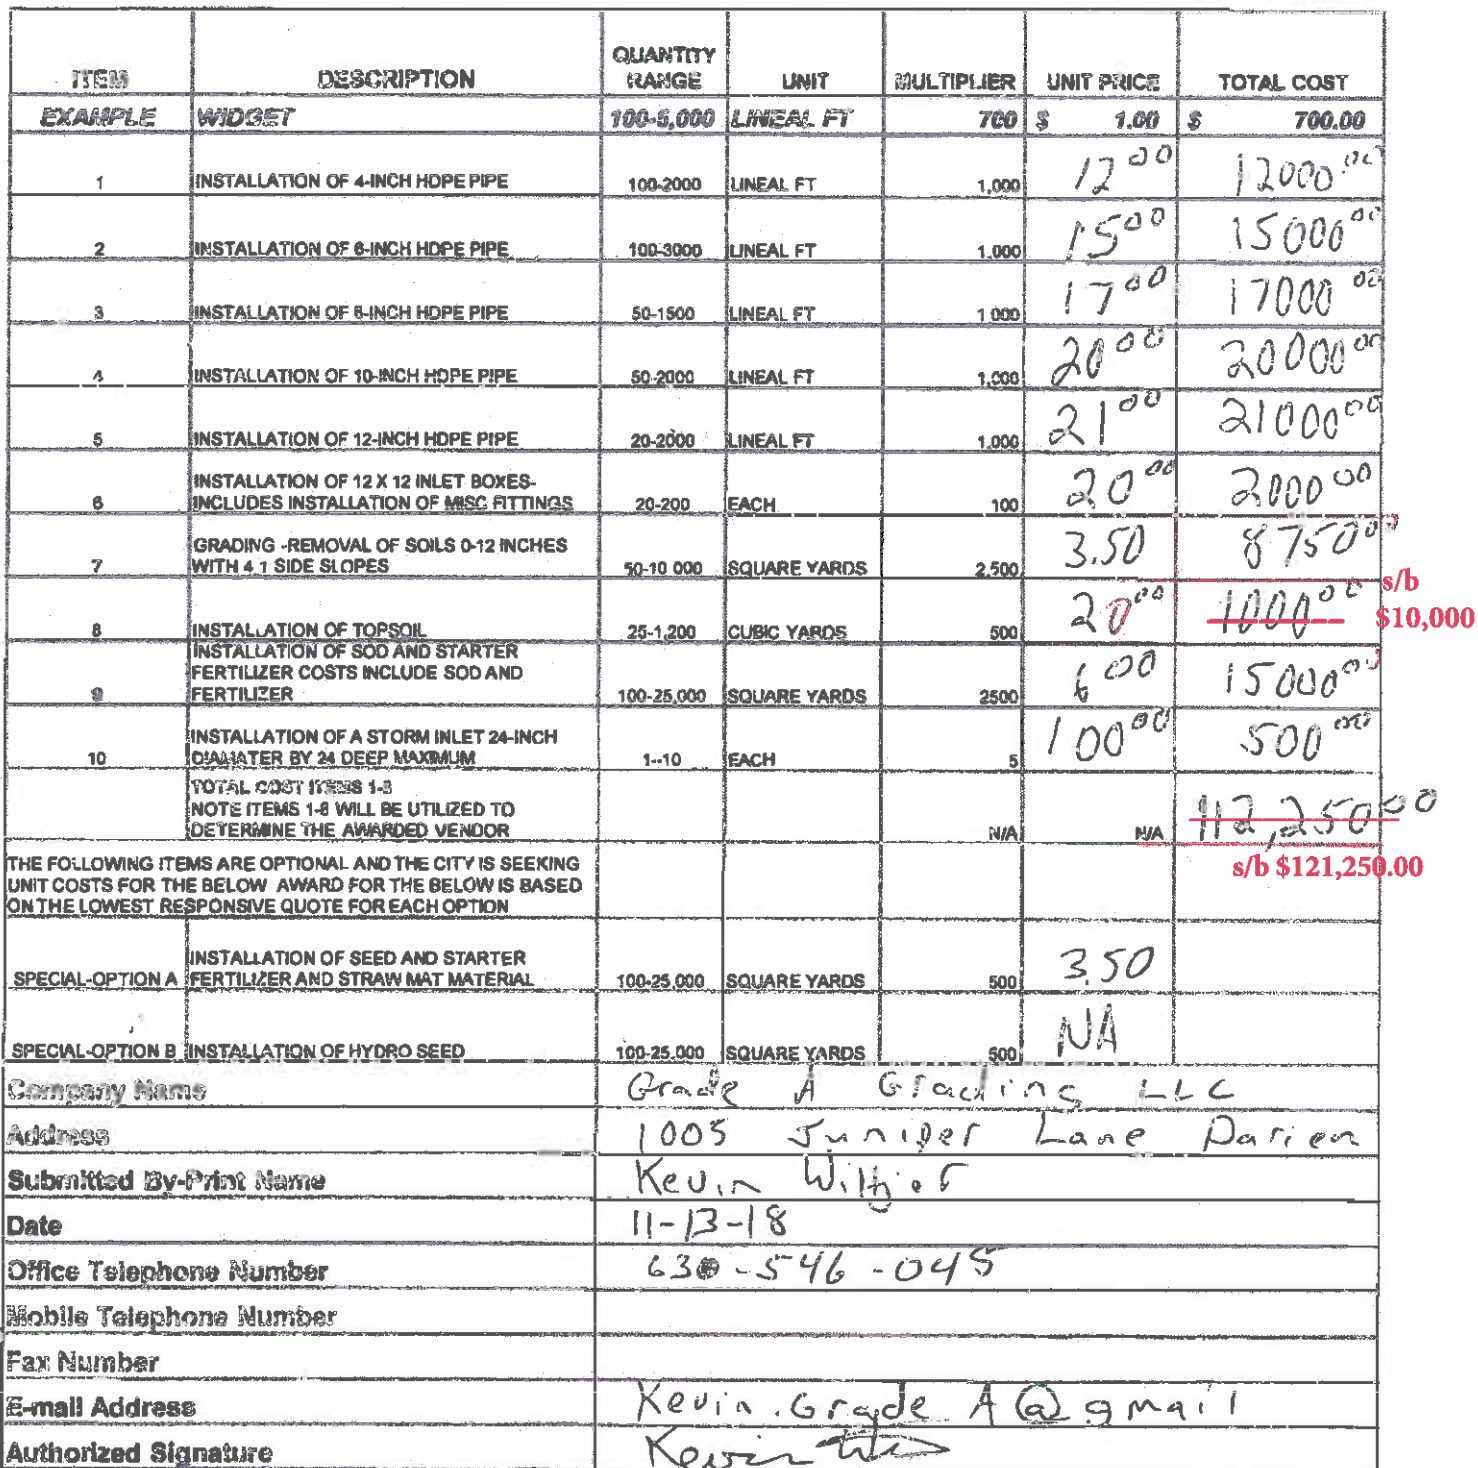 ITEM DESCRIPTION QUANTITY RANGE UNIT MULTIPLIER UNIT PRICE TOTAL COST
EXAMPLE WIDGET 100-5,000 LINEAL FT 700 $ 1.00 $ 700.00
1 INSTALLATION OF 4-INCH HDPE PIPE 100-2000 LINEAL FT 1,000 12 00 12000.00
2 INSTALLATION OF 6-INCH HDPE PIPE 100-3000 LINEAL FT 1,000 15 00 15000 00
3 INSTALLATION OF 8-INCH HDPE PIPE 50-1500 LINEAL FT 1 000 17 00 17000 00
4 INSTALLATION OF 10-INCH HDPE PIPE 50-2000 LINEAL FT 1,000 20 00 20000 00
5 INSTALLATION OF 12-INCH HDPE PIPE 20-2000 LINEAL FT 1,000 21 00 21000 00
INSTALLATION OF 12 X 12 INLET BOXES-
6 INCLUDES INSTALLATION OF MISC FITTINGS 20-200 EACH 100 20 00 2000 00
GRADING -REMOVAL OF SOILS 0-12 INCHES
7 WITH 4 1 SIDE SLOPES 50-10 000 SQUARE YARDS 2,500 3.50 8750 00
8 INSTALLATION OF TOPSOIL 25-1,200 CUBIC YARDS 500 20 00 1000 00 s/b $10,000
INSTALLATION OF SOD AND STARTER
FERTILIZER COSTS INCLUDE SOD AND
9 FERTILIZER 100-25,000 SQUARE YARDS 2500 6 00 15000 00
INSTALLATION OF A STORM INLET 24-INCH
10 DIAMATER BY 24 DEEP MAXIMUM 1--10 EACH 5 100 00 500 00
TOTAL COST ITEMS 1-8
NOTE ITEMS 1-8 WILL BE UTILIZED TO
DETERMINE THE AWARDED VENDOR N/A N/A 112,250 00
s/b $121,250.00
THE FOLLOWING ITEMS ARE OPTIONAL AND THE CITY IS SEEKING
UNIT COSTS FOR THE BELOW AWARD FOR THE BELOW IS BASED
ON THE LOWEST RESPONSIVE QUOTE FOR EACH OPTION
INSTALLATION OF SEED AND STARTER
SPECIAL-OPTION A FERTILIZER AND STRAW MAT MATERIAL 100-25,000 SQUARE YARDS 500 3.50
SPECIAL-OPTION B INSTALLATION OF HYDRO SEED 100-25,000 SQUARE YARDS 500 NA
Company Name Grade A Grading LLC
Address 1005 Juniper Lane Darien
Submitted By-Print Name Kevin
Date 11-13-18
Office Telephone Number 630-546-045
Mobile Telephone Number
Fax Number
E-mail Address Kevin.Grade A@gmail
Authorized Signature Kevin